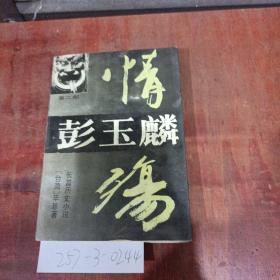 第二部
情
彭玉麟
殇
长篇历史小说
［台湾］毕珍著
257-3-0244